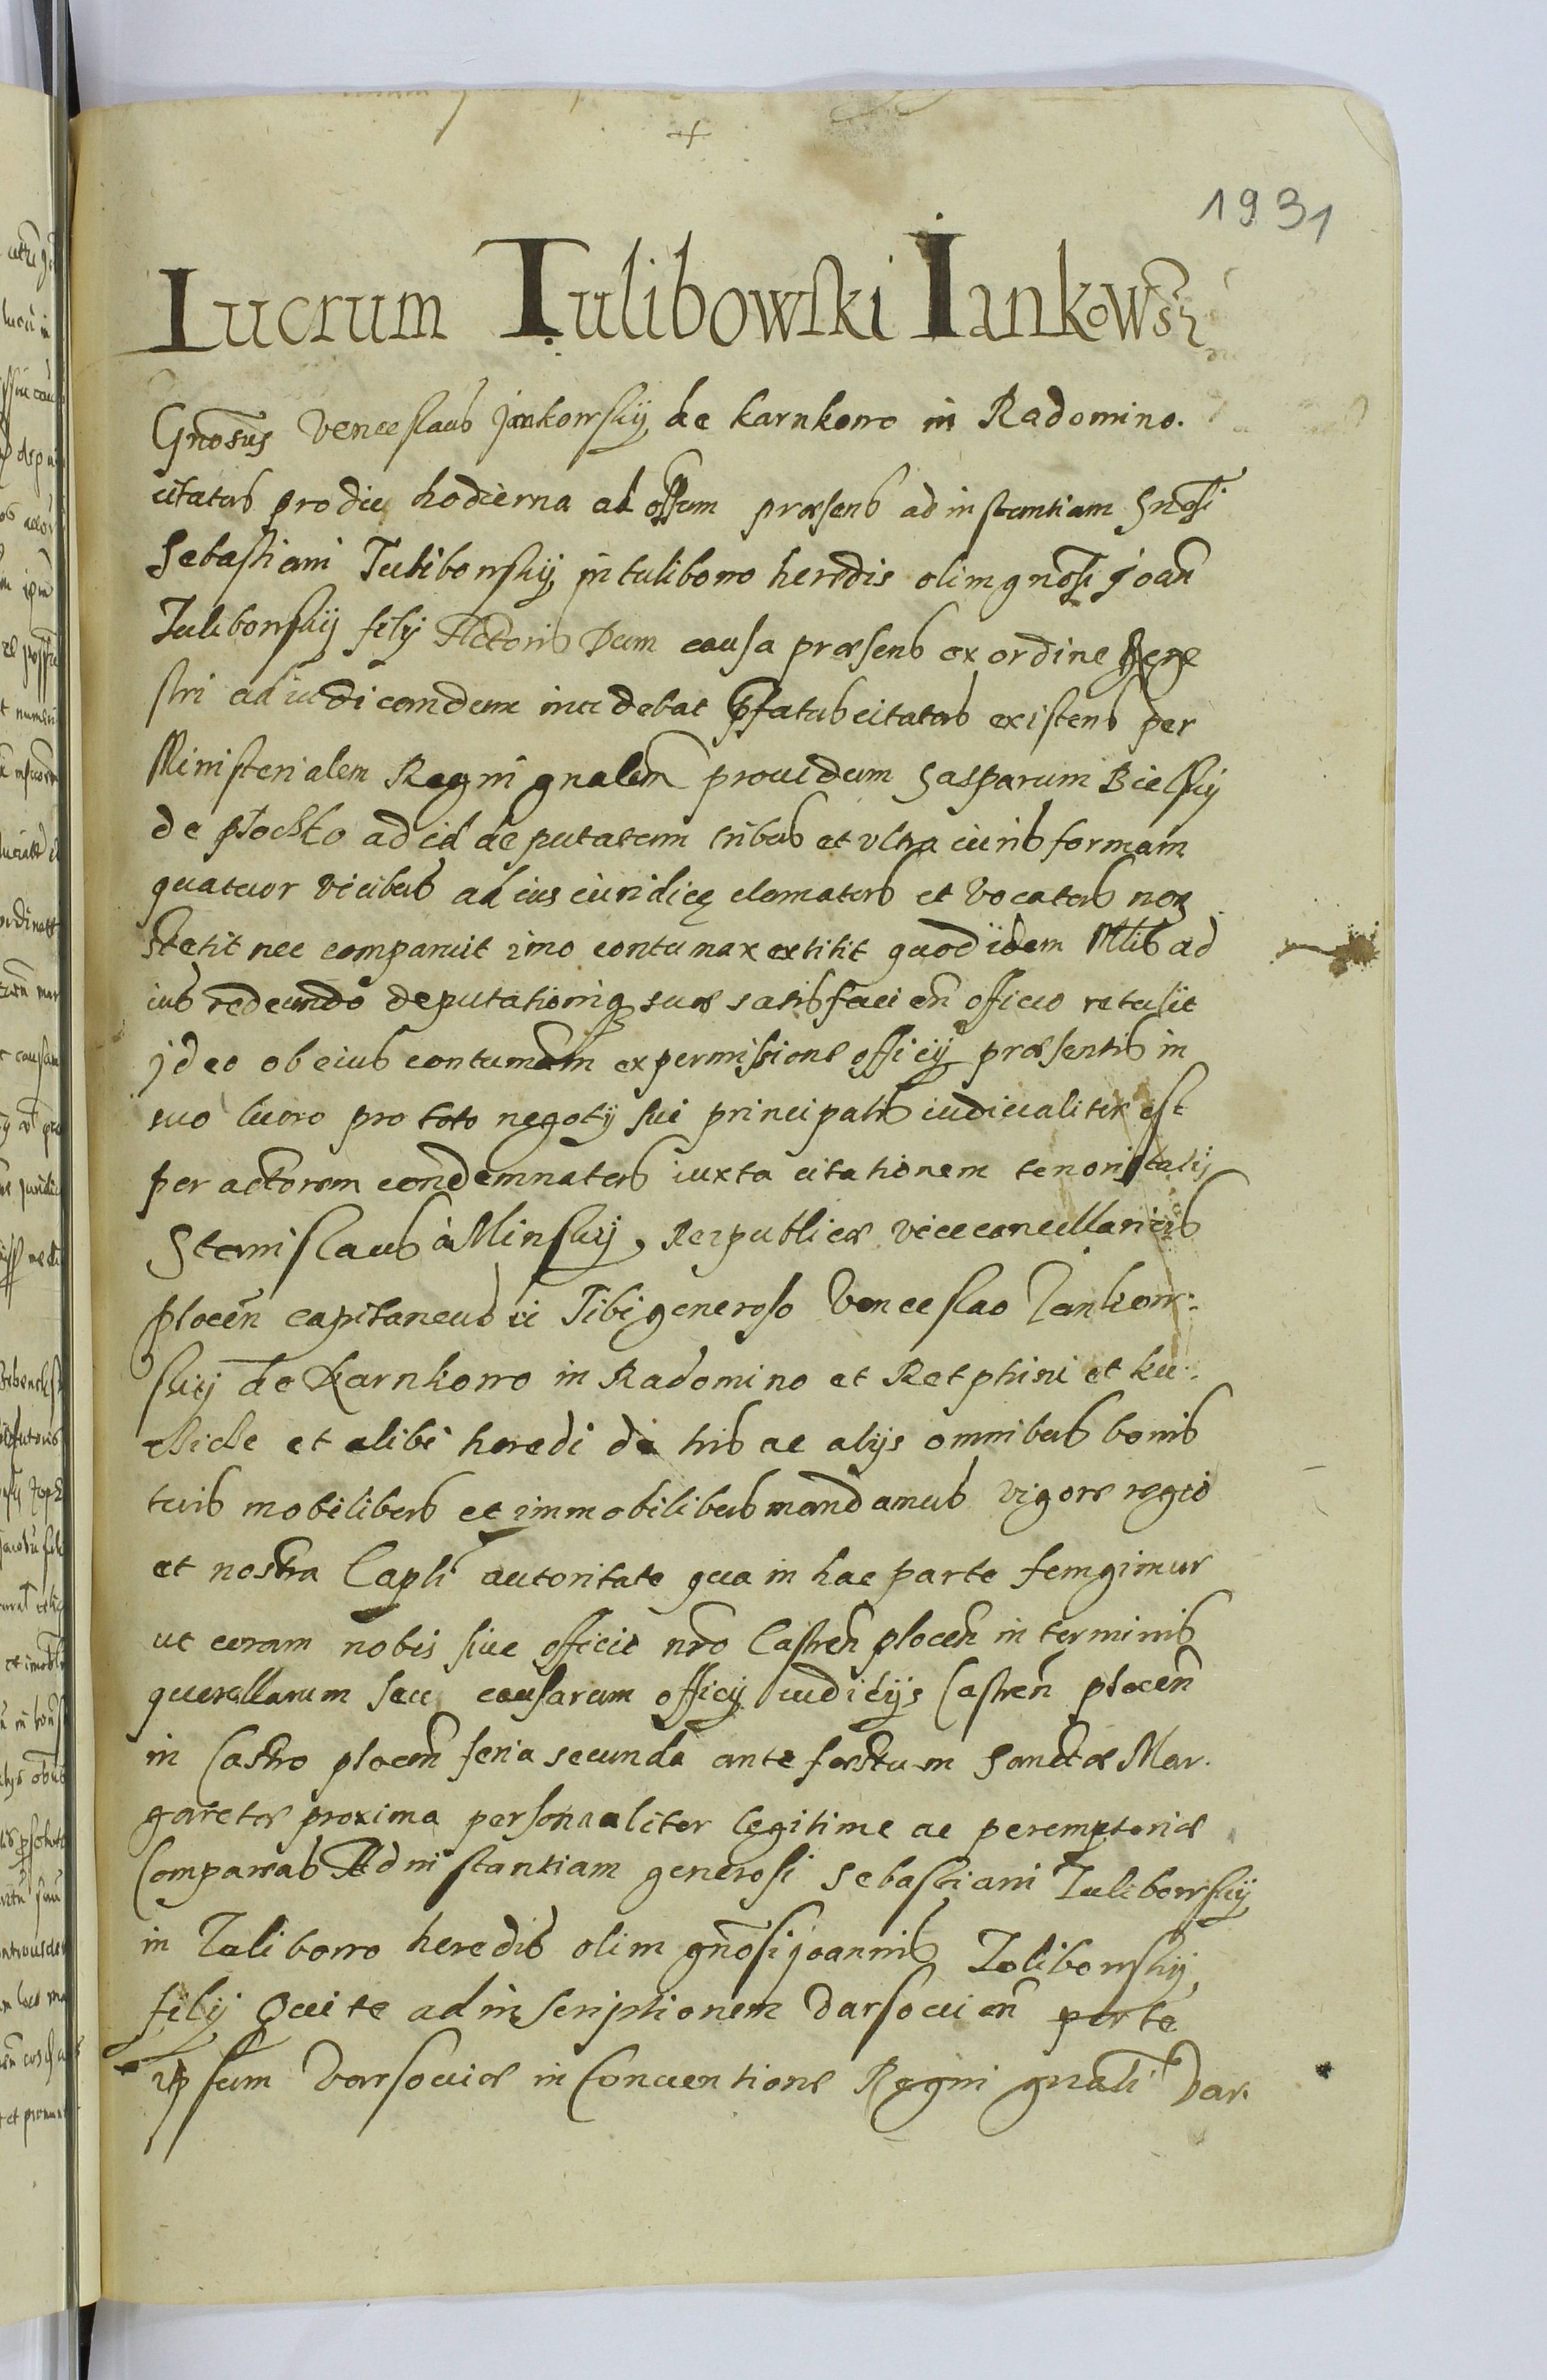 1931
Lucrum Tulibowski Iankowski
Gnosus Venceslaus Jankowsky de Karnkowo in Radomino.
citatus pro die hodierna ad offum præsens ad instantiam Gnosi
Sebastiani Tulibowsky in tulibowo heredis olim gnosi Joan
Tulibowsky filij Actoris Dum causa præsens ex ordine Rege
stri ad iudicandum incidebat Pfatus citatus existens per
Ministerialem Regni gnalem providum Gasparum Bielsky
de plocsko ad id deputatum tribus et vltra iuris formam
quatuor vicibus ad ius iuridicę clamatus et vocatus non
stetit nec comparuit imo contumax extitit quod idem Mlis ad
ius redeundo deputationiq suæ satisfacien officio retulit
jdeo ob eius contumam ex permissione officij præsentis in
suo lucro pro toto negotij sui principalis iudicialiter est
per actorem condemnatus iuxta citationem tenoris talis
Stanislaus à Minsky, Reipublicæ vicecancellarius
plocen capitaneus Tibi generoso Venceslao Jankow:
sky de Karnkowo in Radomino et Retphini et ku:
et alibi heredi de his ac alijs omnibus bonis
tuis mobilibus et immobilibus mandamus vigore regio
et nostra Capli autoritate qua in hac parte fungimur
ut coram nobis siue officio nro Castren plocen in terminis
querellarum seu causarum officij iudicijs Castren plocen
in Castro plocen feria secunda ante festum Sanctæ Mar.
garetæ proxima personaliter legitime ac peremptorie
Compareas Ad instantiam generosi Sebastiani Tulibowsky
in Tulibowo heredis olim gnosi joannis Tolibowsky
filij Qui te ad inscriptionem Varsovien per te
ipsum Varsoviæ in Conventione Regni gnali Var.